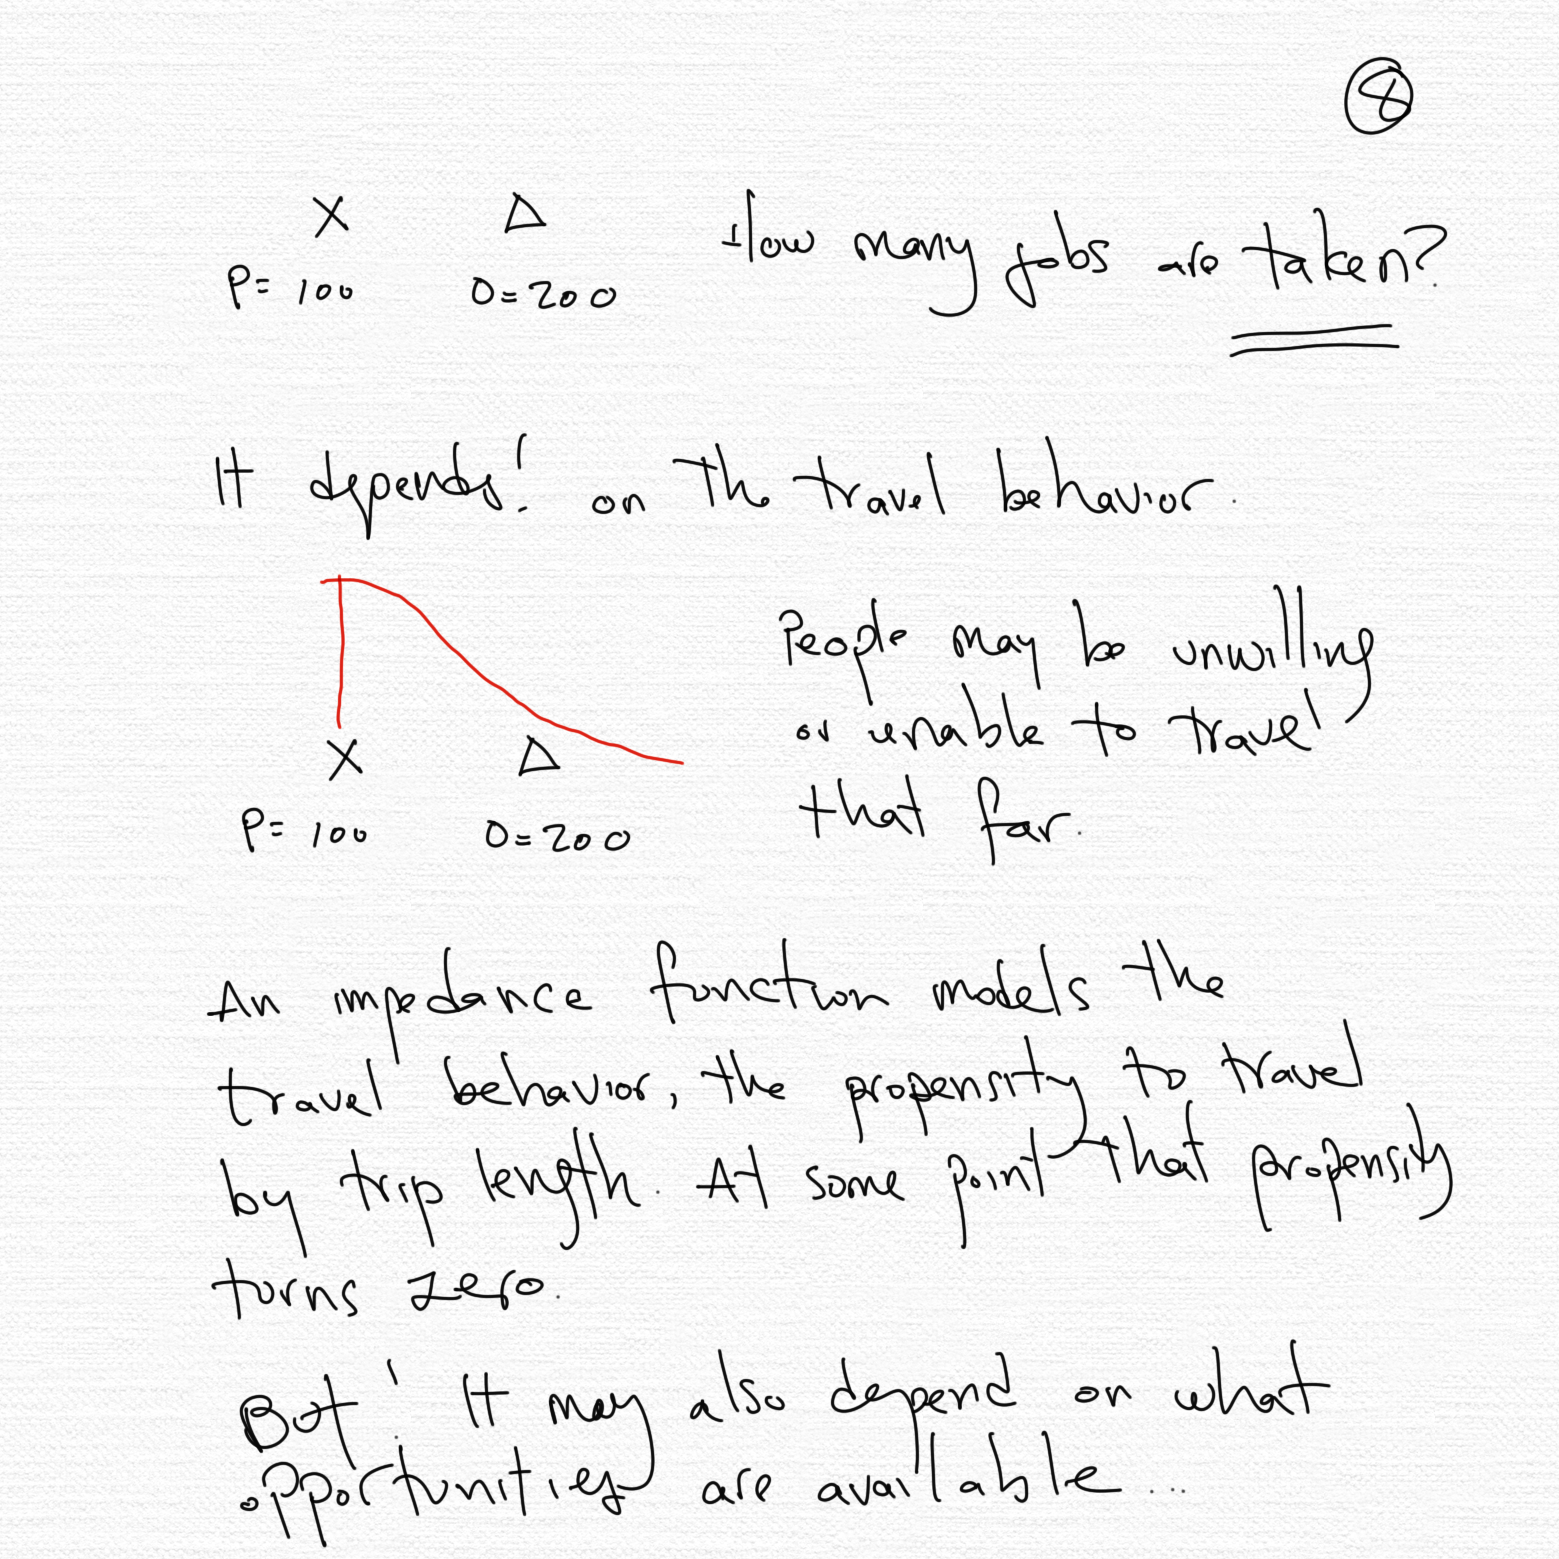 8
X Δ How many jobs are taken?
P= 100 O=200
It depends! on the travel behavior.
People may be unwilling
or unable to travel
X Δ
that far.
P= 100 O=200
An impedance function models the
travel behavior, the propensity to travel
by trip length. At some point that propensity
turns zero.
But! It may also depend on what
opportunities are available...